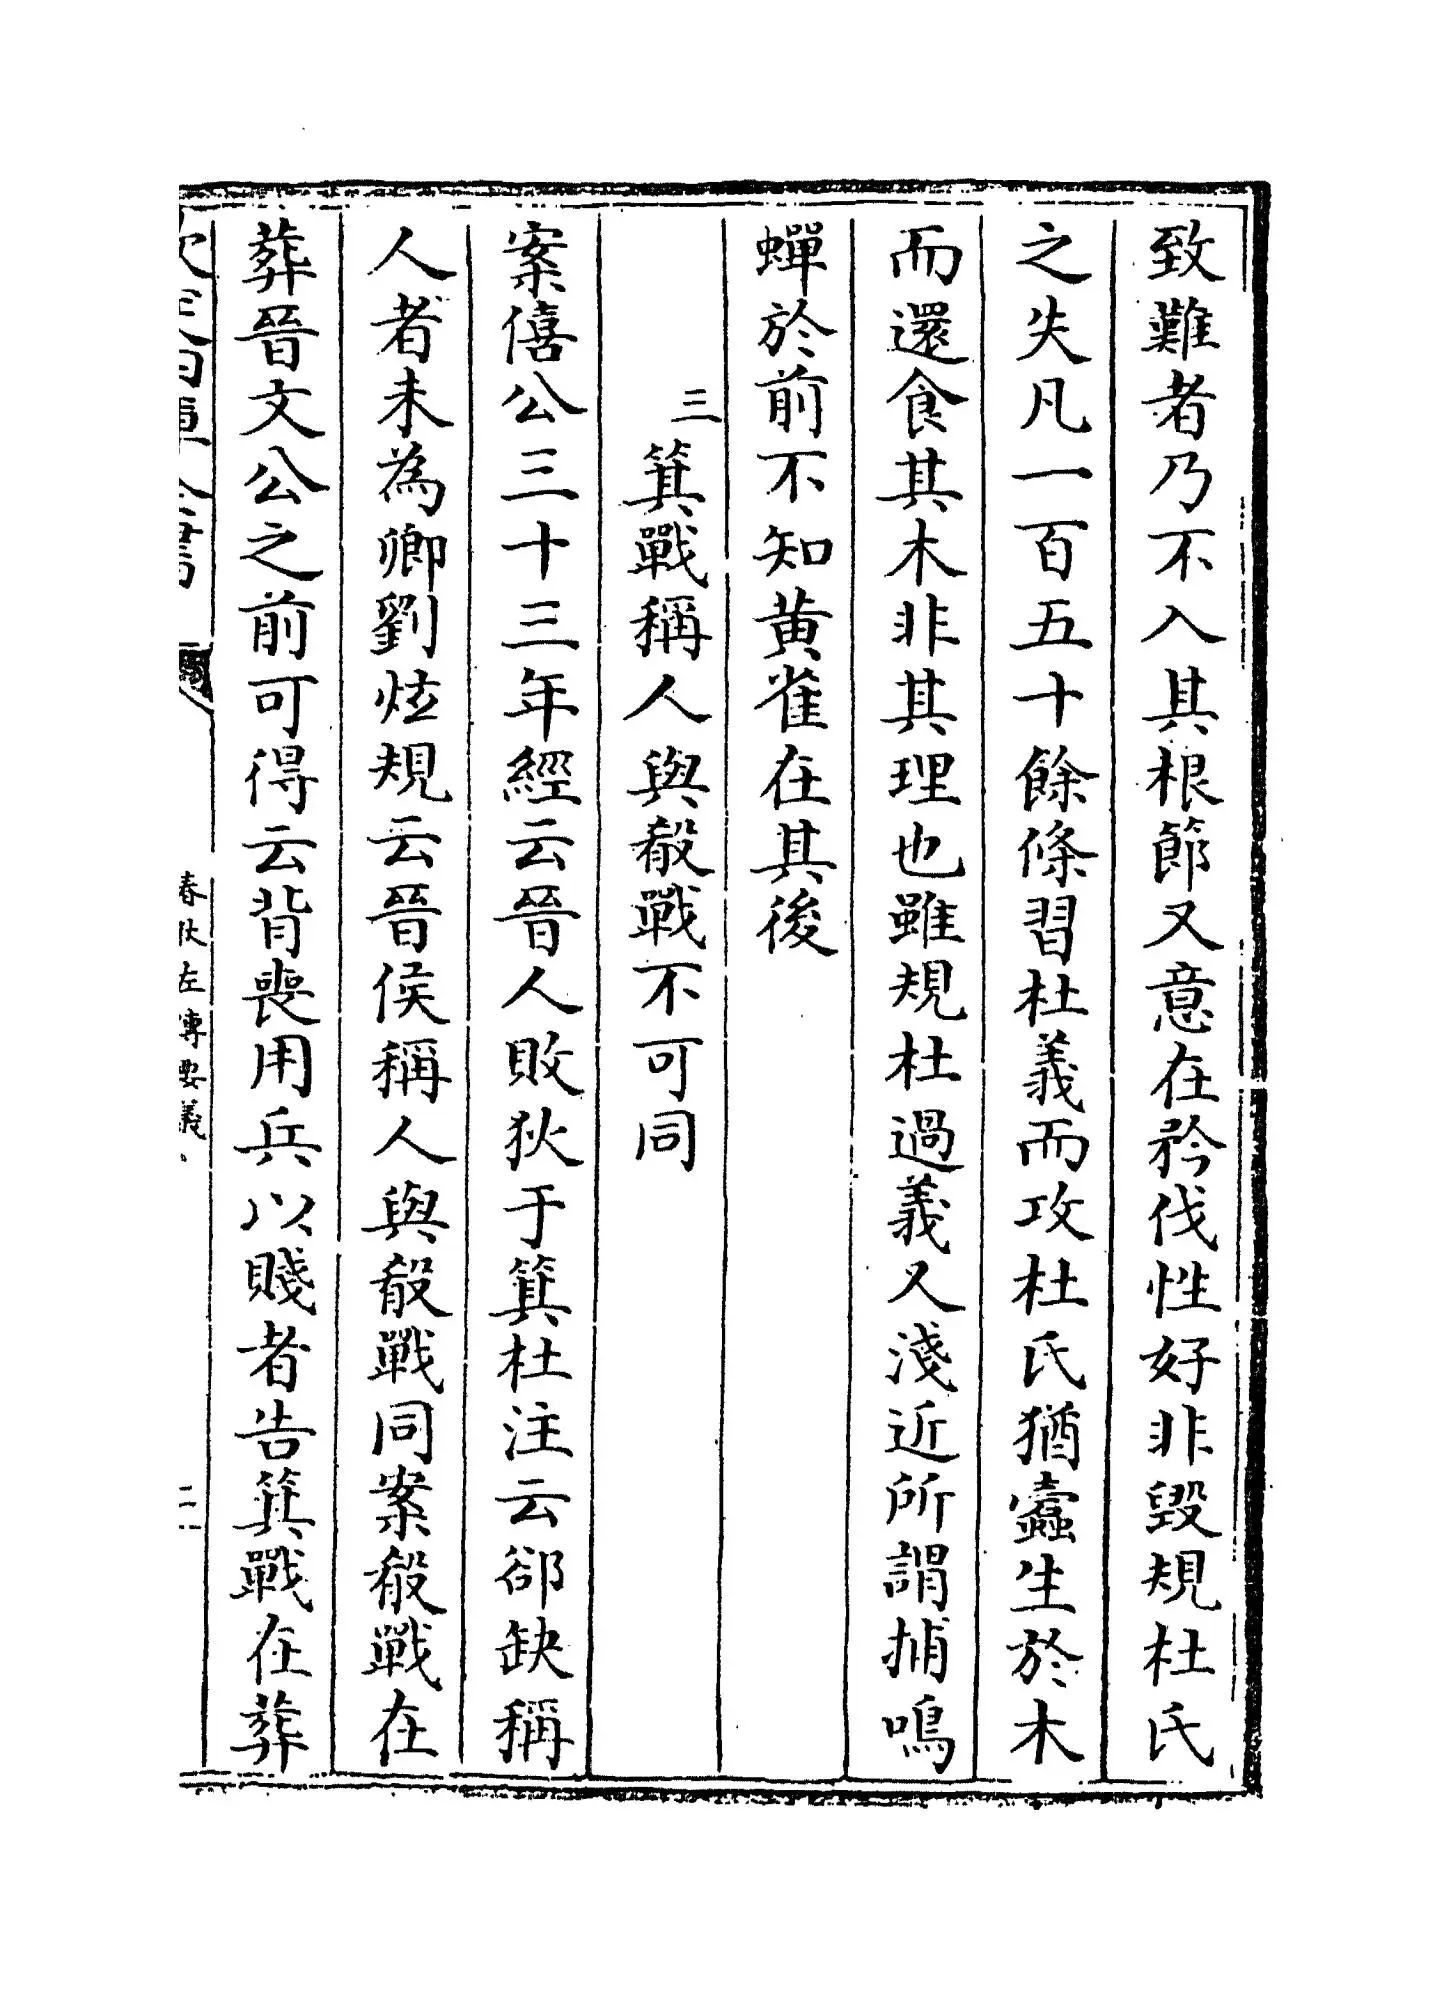 致難者乃不入其根節又意在矜伐性好非毀規杜氏
之失凡一百五十餘條習杜義而攻杜氏猶蠹生於木
而還食其木非其理也雖規杜過義又淺近所謂捕鳴
蟬於前不知黄雀在其後
三
箕戰稱人與殽戰不可同
案僖公三十三年經云晉人敗狄于箕杜注云郤缺稱
人者未為卿劉炫規云晉侯稱人與殽戰同案殽戰在
葬晉文公之前可得云背喪用兵以賤者告箕戰在葬
欽定四庫全書
春秋左傳要義
二